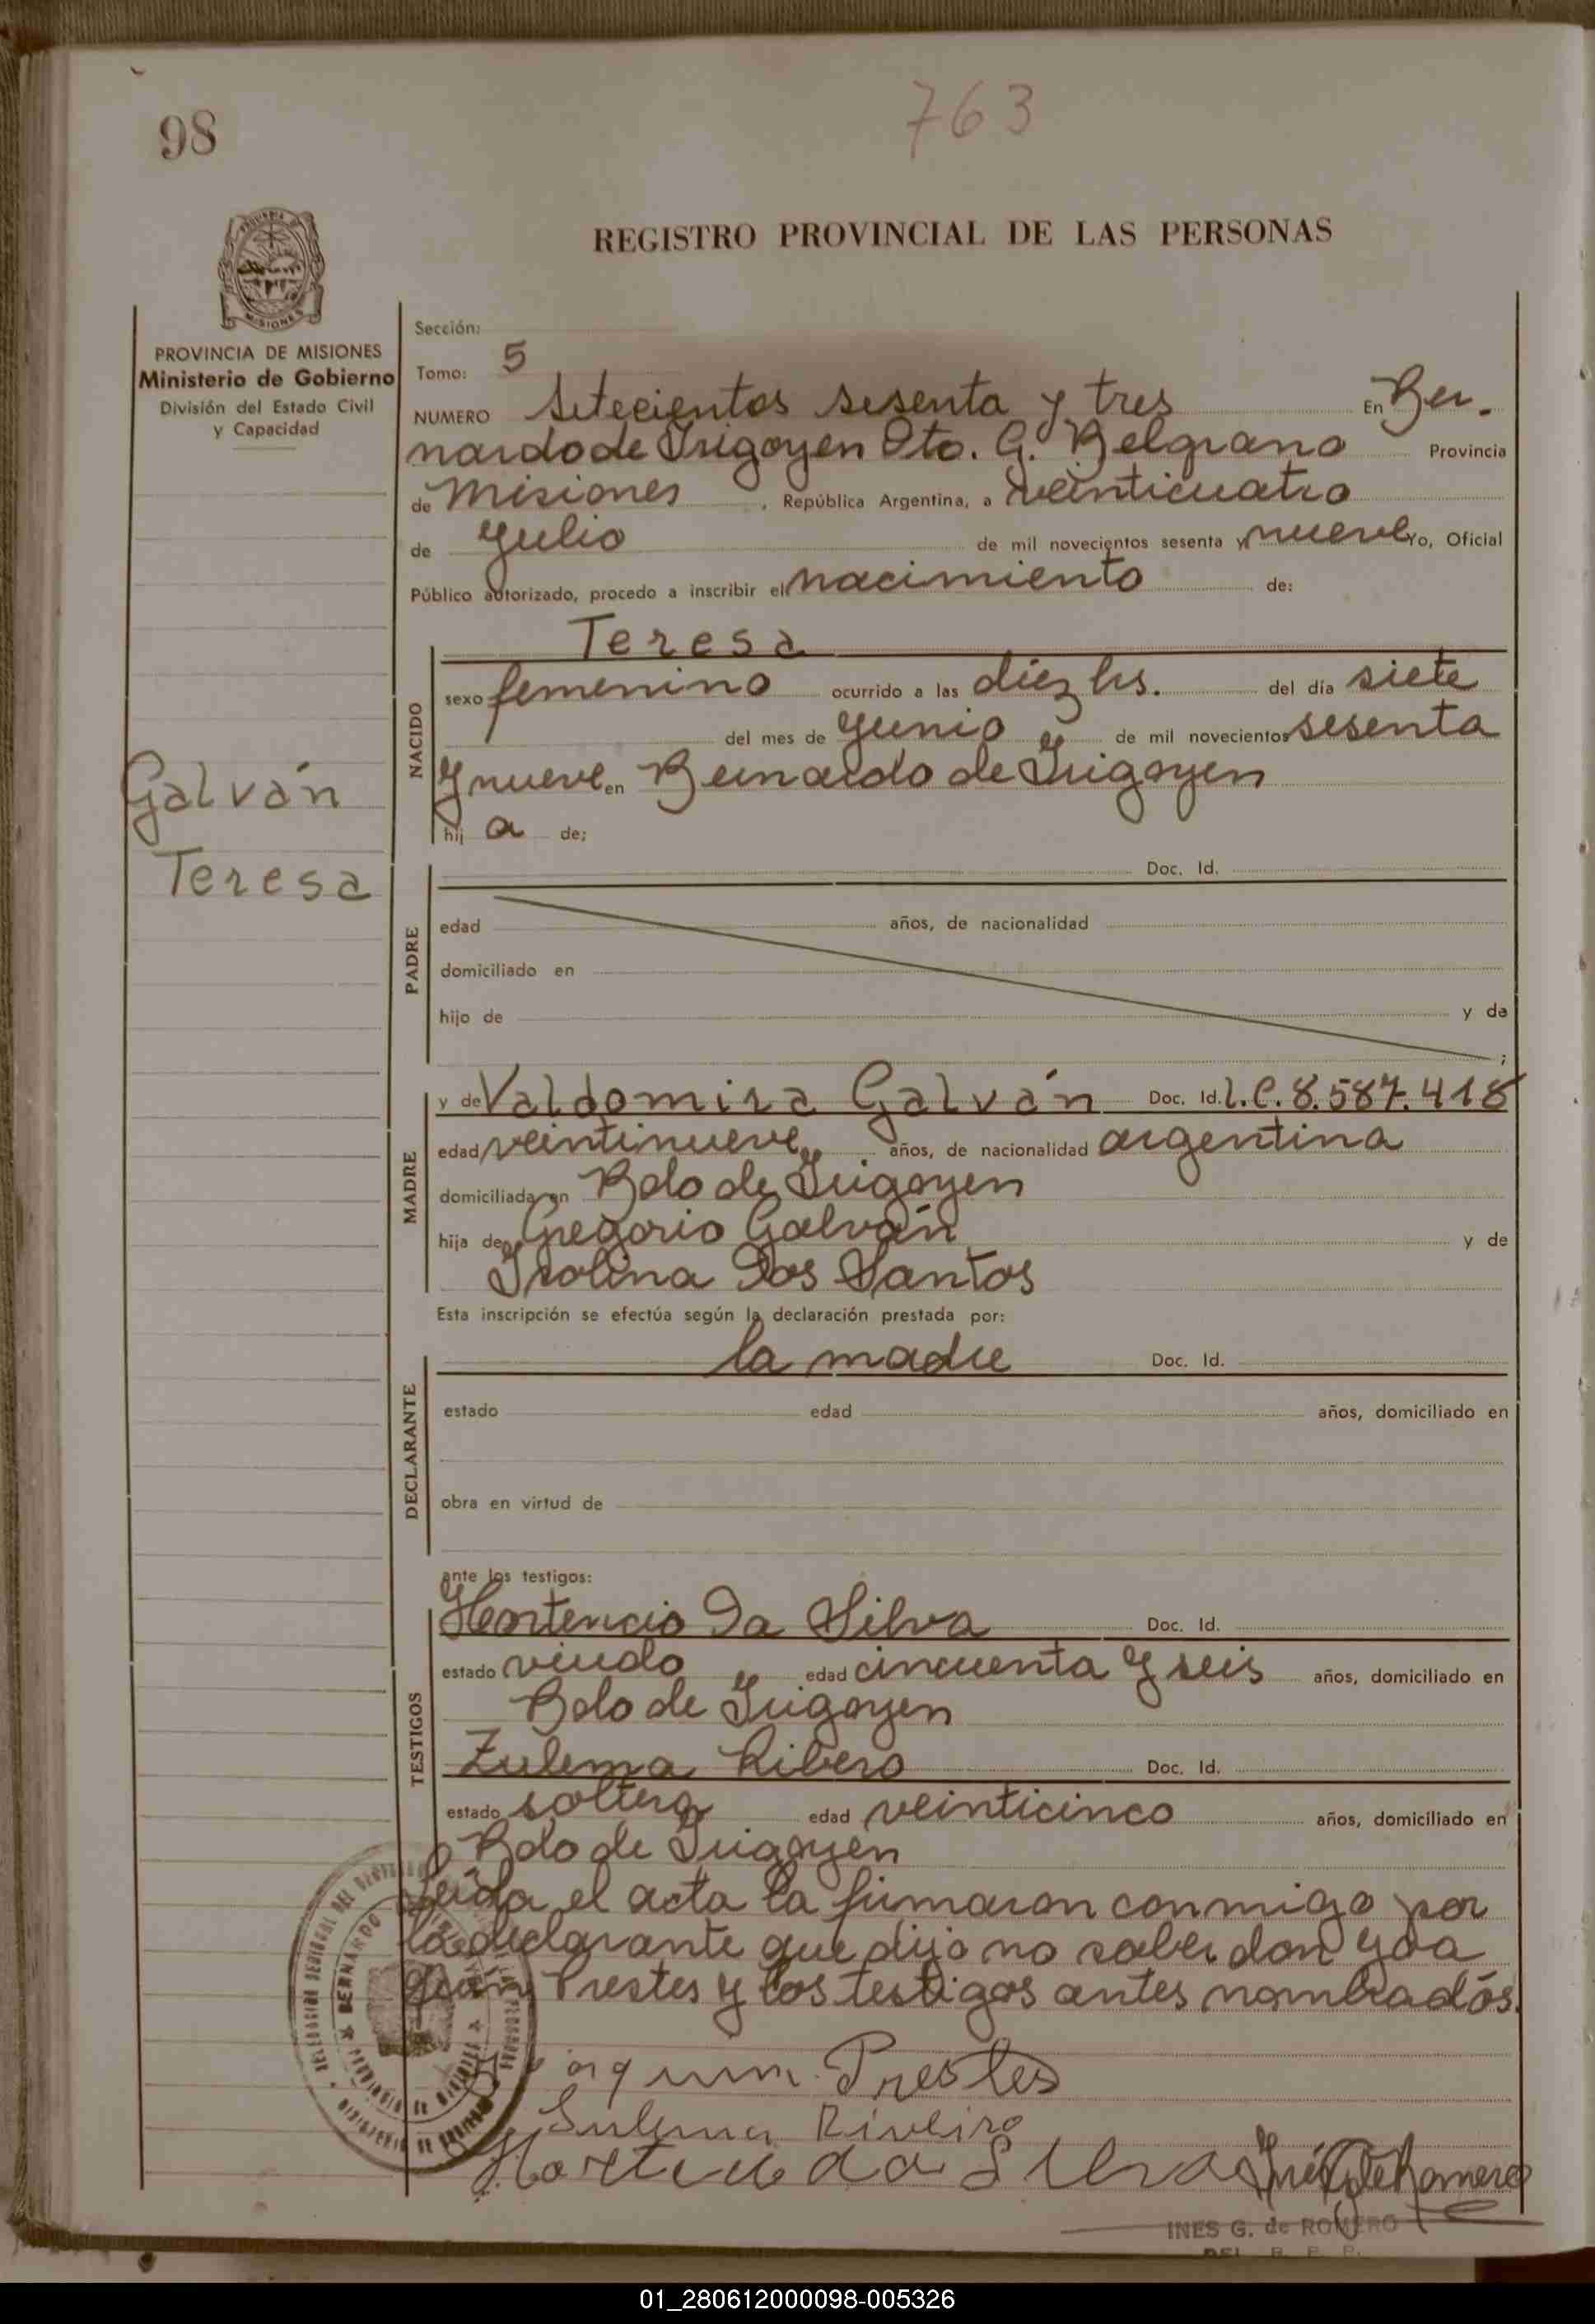 763
98
REGISTRO PROVINCIAL DE LAS PERSONAS
PROVINCIA DE MISIONES
Ministerio de Gobierno
División del Estado Civil
y Capacidad
Sección:
Tomo: 5
NUMERO Setecientos sesenta y tres En Ber-
nardo de Irigoyen Dto. G. Belgrano Provincia
de Misiones, República Argentina, a veinticuatro
de Julio de mil novecientos sesenta y nueve Yo, Oficial
Público autorizado, procedo a inscribir el nacimiento de:
NACIDO
Teresa
sexo femenino ocurrido a las diez hs. del día siete
del mes de Junio de mil novecientos sesenta
y nueve en Bernardo de Irigoyen
hij a de;
Galván
Teresa
PADRE
Doc. Id.
edad años, de nacionalidad
domiciliado en
hijo de y de
;
MADRE
y de Valdomira Galván Doc. Id. L.C. 8.587.418
edad veintinueve años, de nacionalidad argentina
domiciliada en Bdo de Irigoyen
hija de Gregorio Galván y de
Isolina Dos Santos
Esta inscripción se efectúa según la declaración prestada por:
DECLARANTE
la madre Doc. Id.
estado edad años, domiciliado en
obra en virtud de
ante los testigos:
TESTIGOS
Hortencio Da Silva Doc. Id.
estado viudo edad cincuenta y seis años, domiciliado en
Bdo de Irigoyen
Zulema Ribero Doc. Id.
estado soltera edad veinticinco años, domiciliado en
Bdo de Irigoyen
Leída el acta la firmaron conmigo por
la declarante que dijo no saber don
Prestes y los testigos antes nombrados.
Prestes
Sulema Riveiro
da Silva Inés G de Romero
INES G. de ROMERO
DEL. R. P. P.
01_280612000098-005326